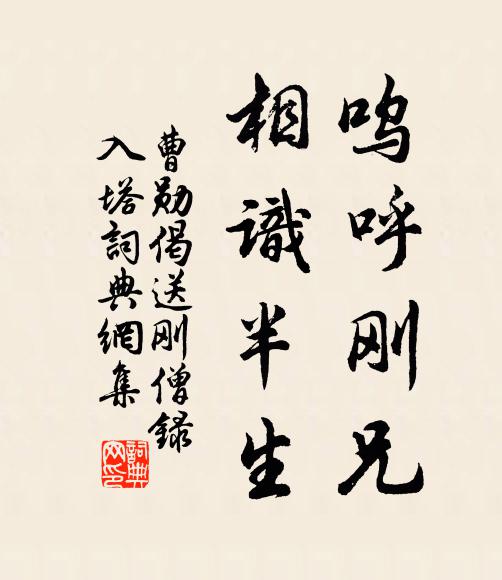 呜呼刚兄
相識半生
曹勋偈送刚僧録
入塔詞典網集
詞典网印